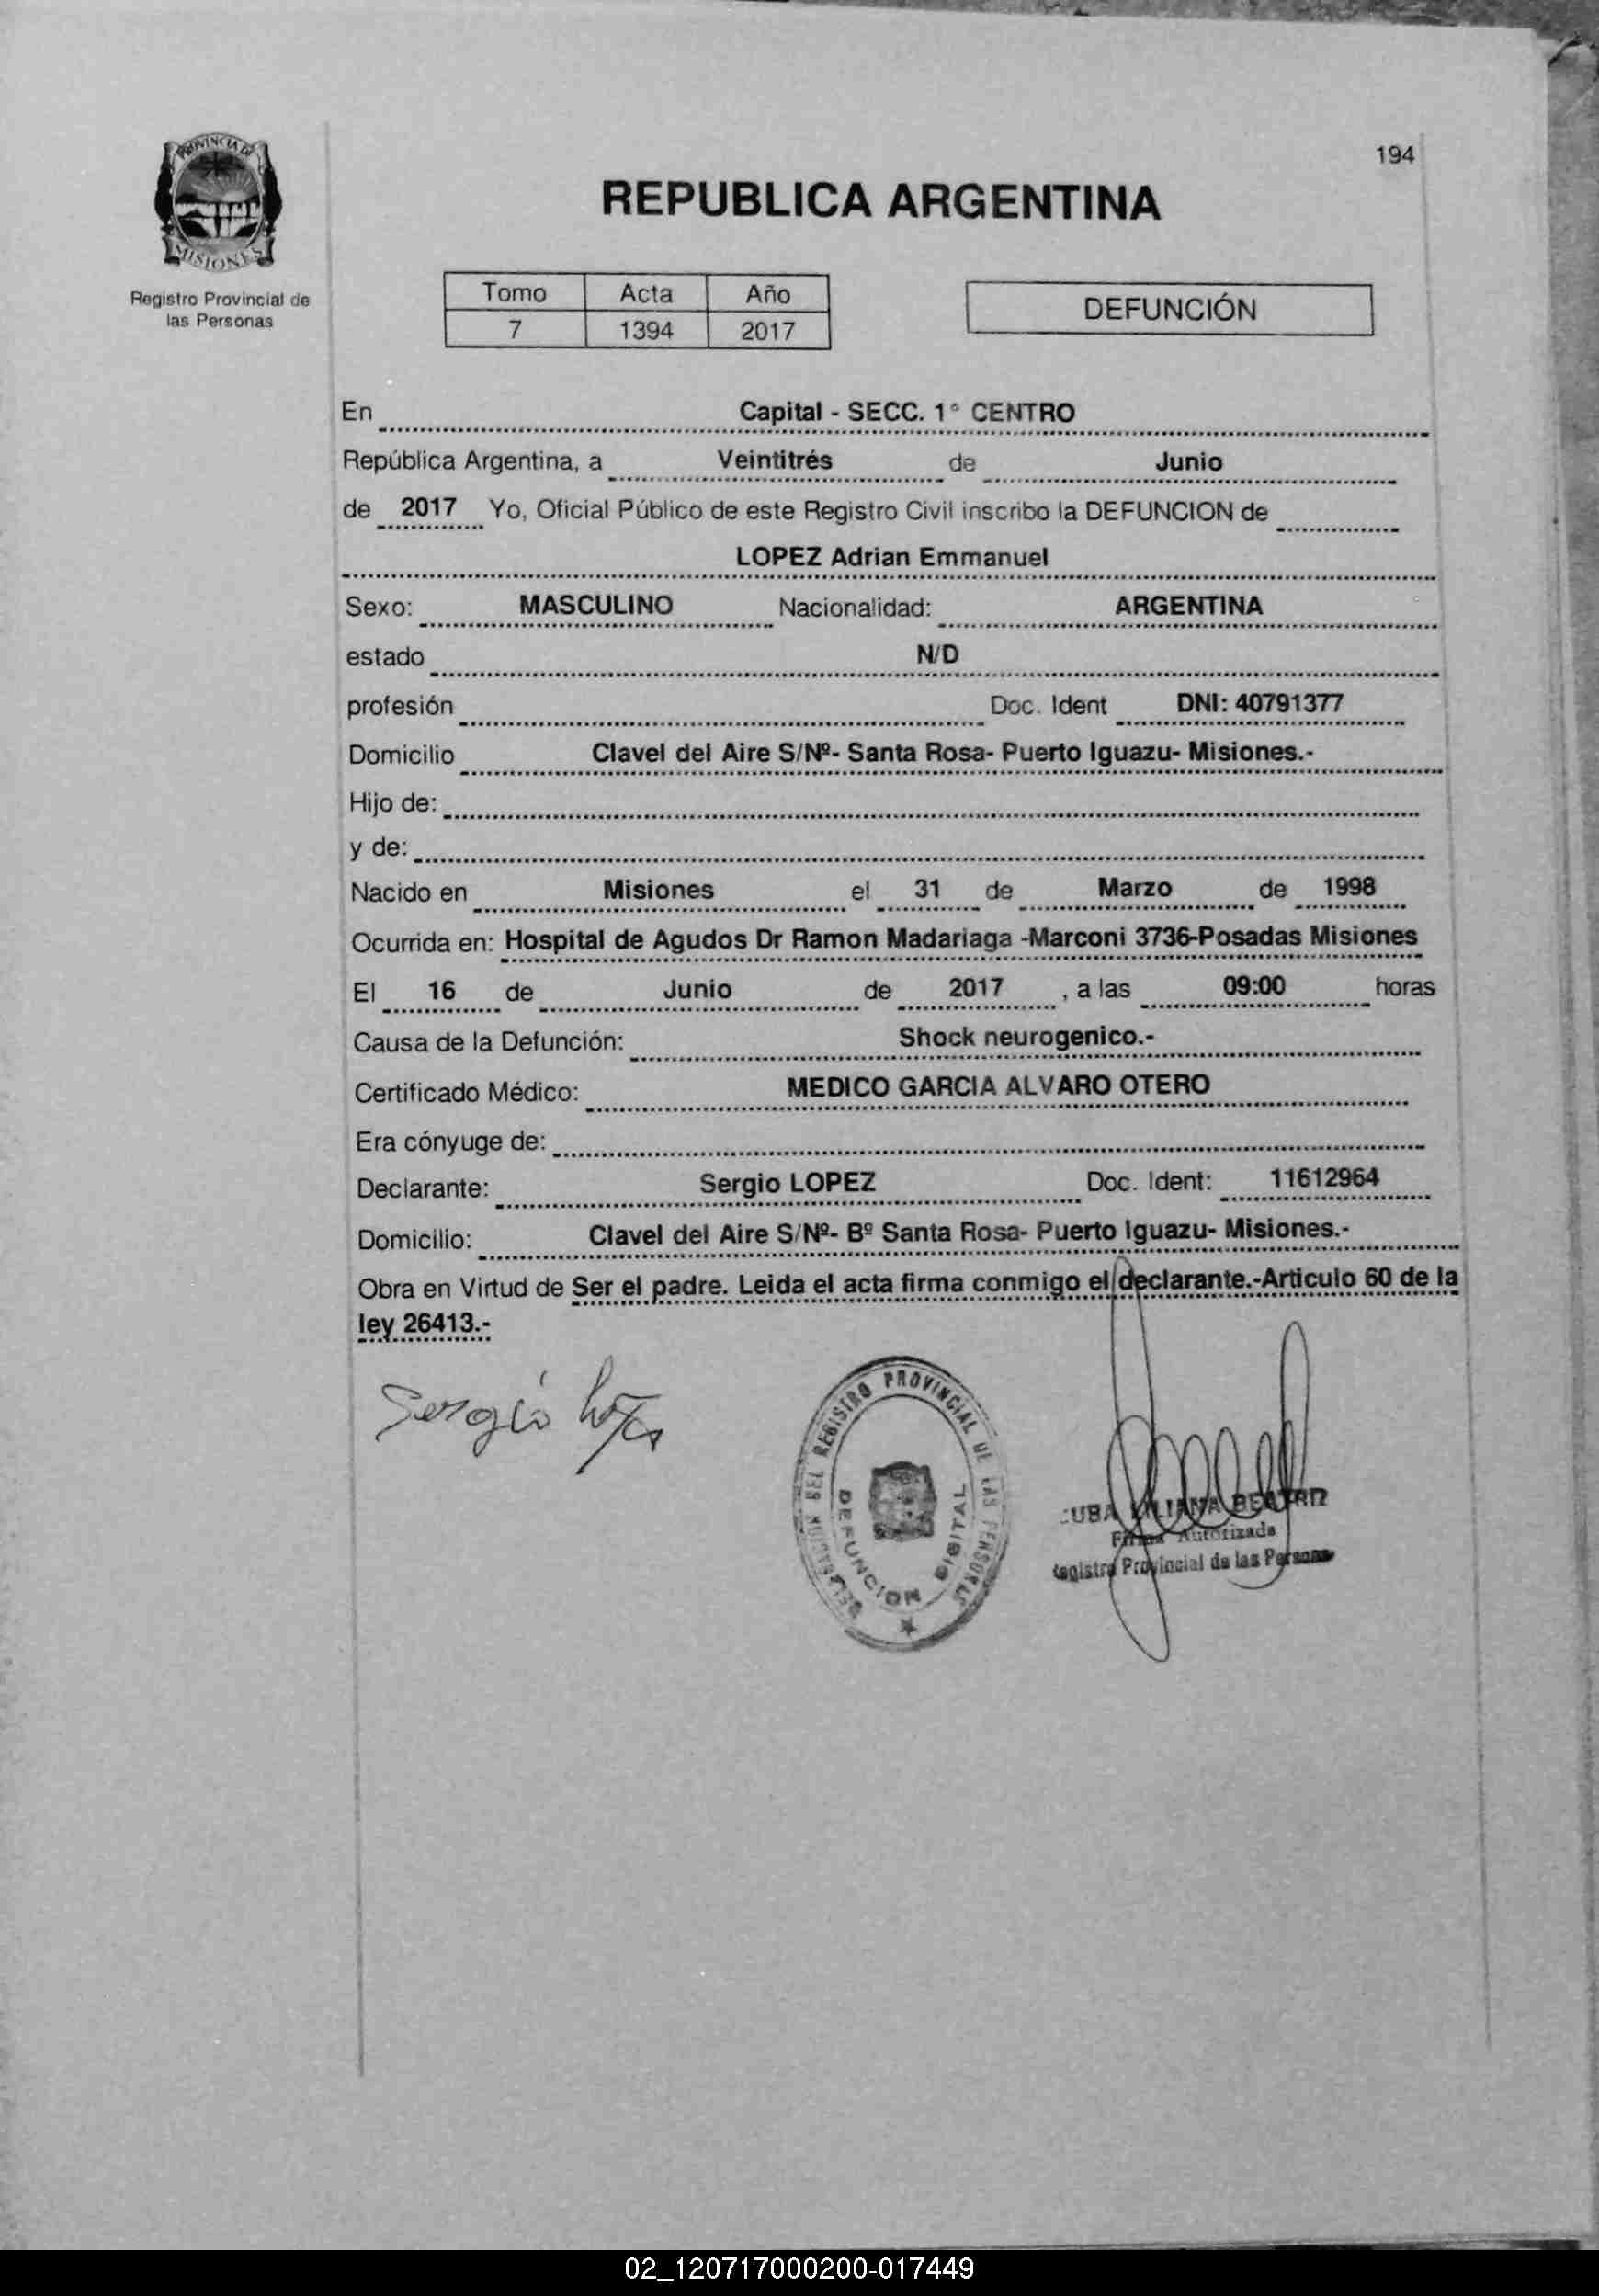 PROVINCIA DE
MISIONES
Registro Provincial de
las Personas
194
REPUBLICA ARGENTINA
Tomo Acta Año
7 1394 2017
DEFUNCIÓN
En Capital - SECC. 1° CENTRO
República Argentina, a Veintitrés de Junio
de 2017 Yo, Oficial Público de este Registro Civil inscribo la DEFUNCION de
LOPEZ Adrian Emmanuel
Sexo: MASCULINO Nacionalidad: ARGENTINA
estado N/D
profesión Doc. Ident DNI: 40791377
Domicilio Clavel del Aire S/Nº- Santa Rosa- Puerto Iguazu- Misiones.-
Hijo de:
y de:
Nacido en Misiones el 31 de Marzo de 1998
Ocurrida en: Hospital de Agudos Dr Ramon Madariaga -Marconi 3736-Posadas Misiones
El 16 de Junio de 2017 , a las 09:00 horas
Causa de la Defunción: Shock neurogenico.-
Certificado Médico: MEDICO GARCIA ALVARO OTERO
Era cónyuge de:
Declarante: Sergio LOPEZ Doc. Ident: 11612964
Domicilio: Clavel del Aire S/Nº- Bº Santa Rosa- Puerto Iguazu- Misiones.-
Obra en Virtud de Ser el padre. Leida el acta firma conmigo el declarante.-Articulo 60 de la
ley 26413.-
Sergio López
DEL REGISTRO PROVINCIAL DE LAS PERSONAS
DEFUNCION DIGITAL
LILIANA BEATRIZ
Firma Autorizada
Registro Provincial de las Personas
02_120717000200-017449